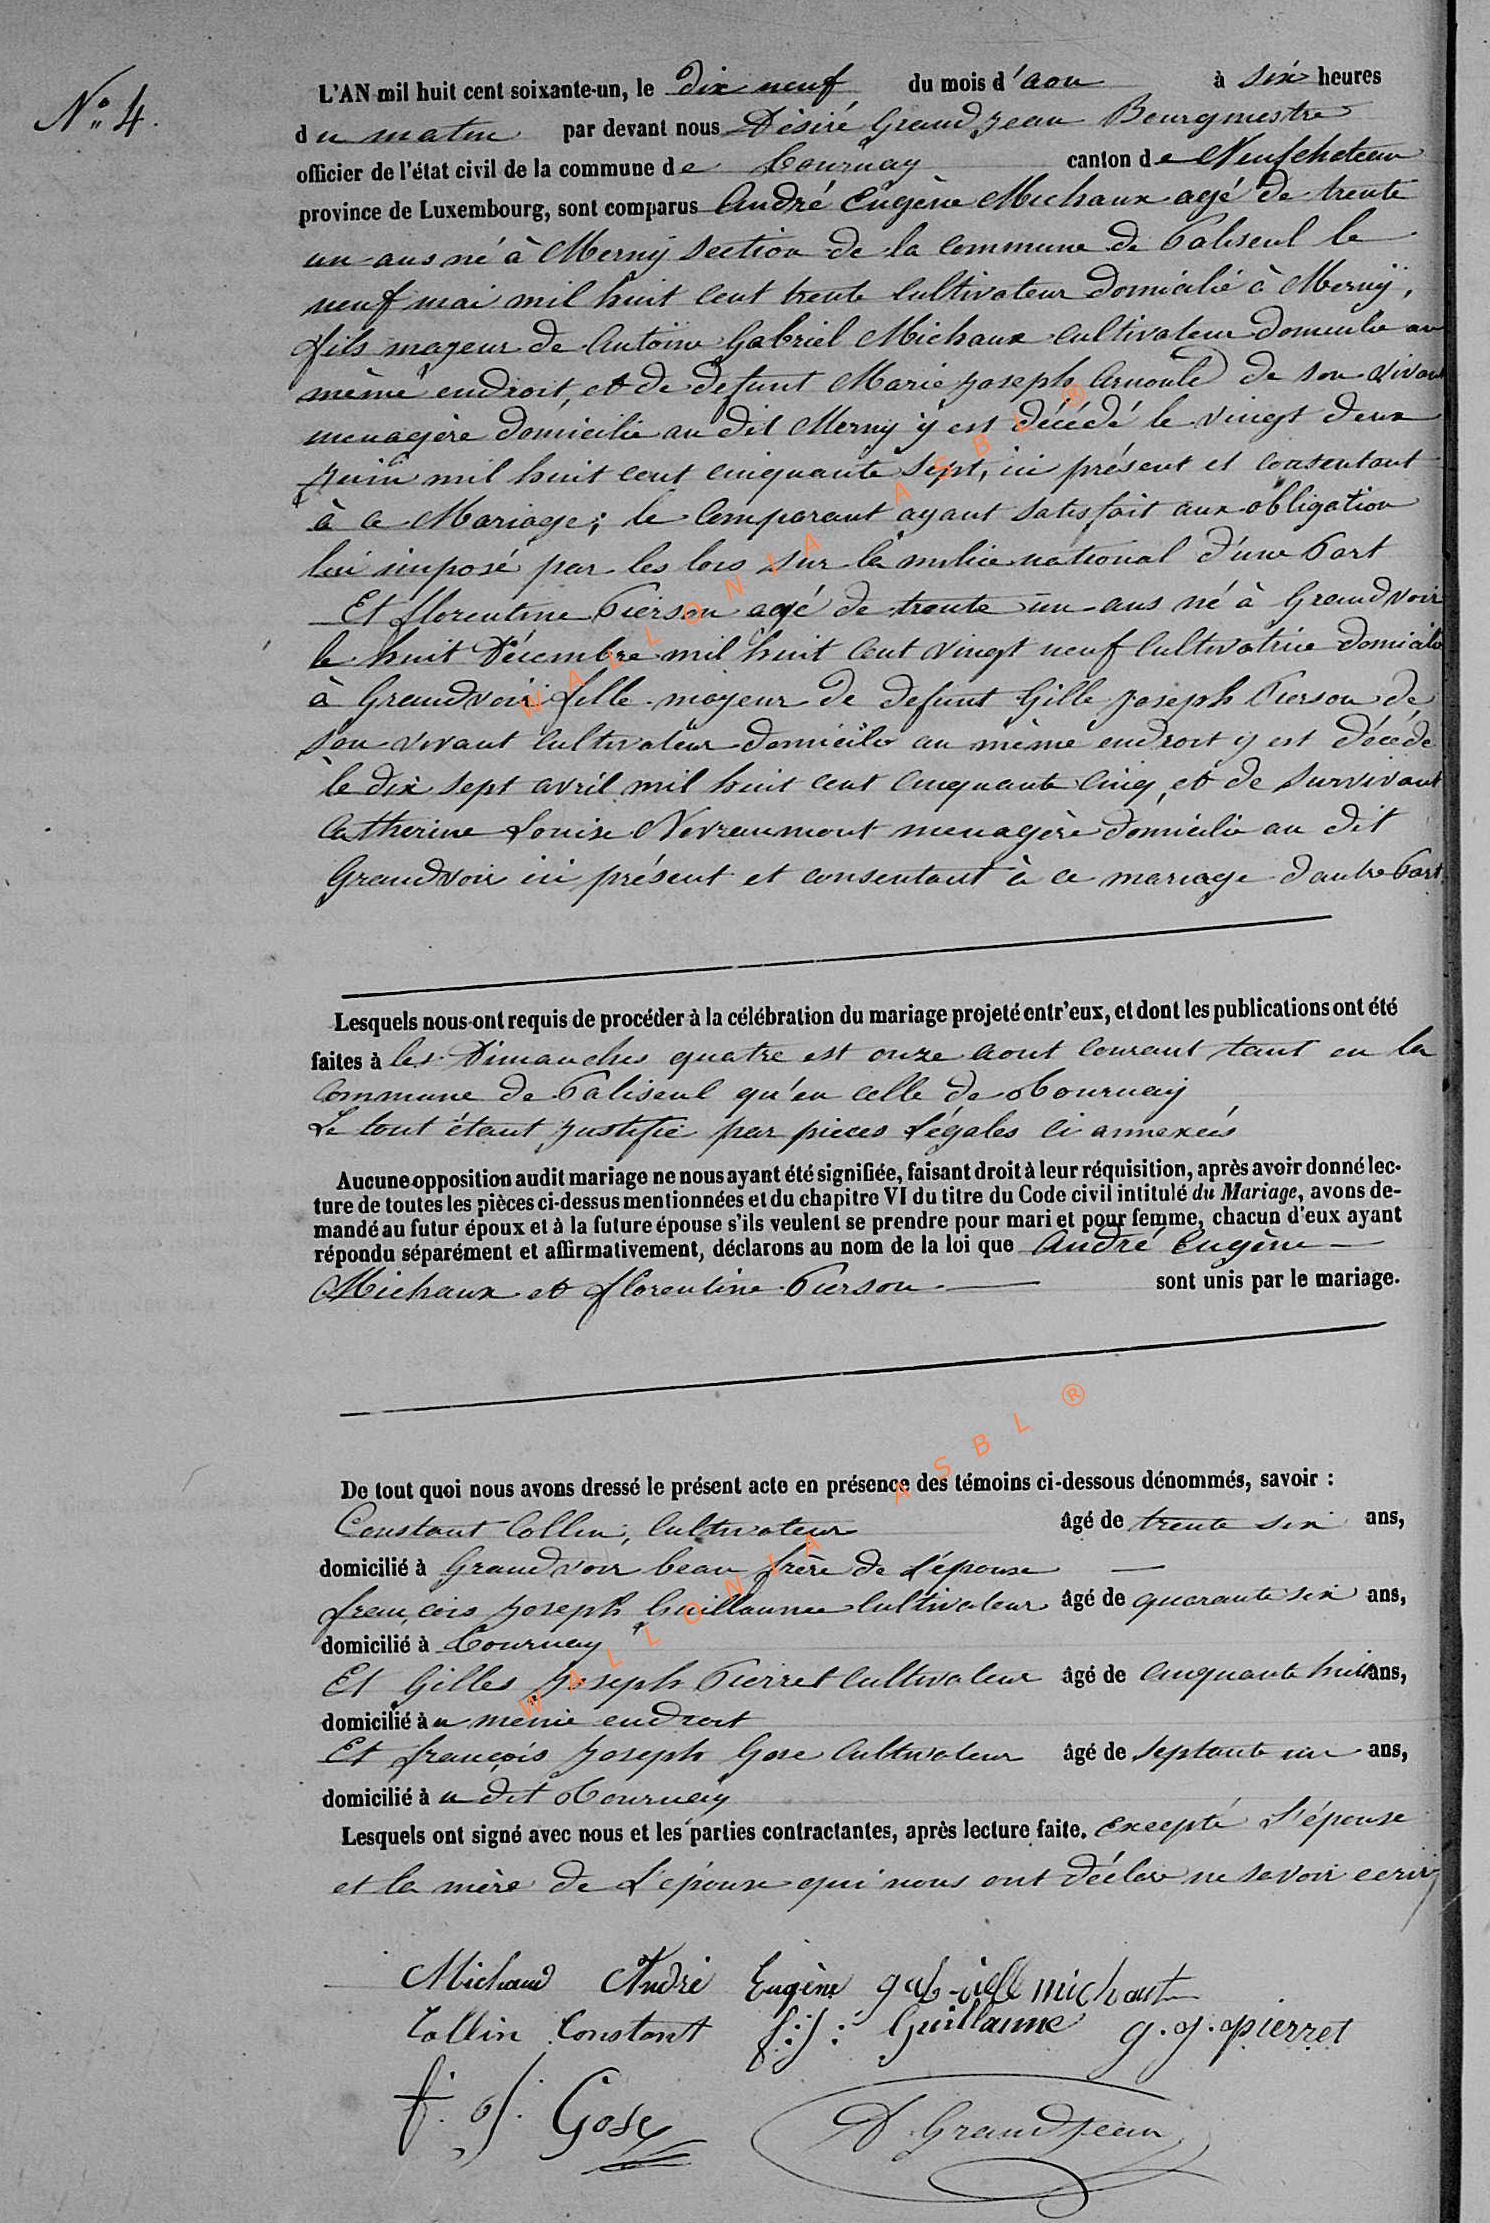 N° 4.
L'AN mil huit cent soixante-un, le dix neuf du mois d'aou à six heures
du matin par devant nous Désiré Grandjean Bourgmestre
officier de l'état civil de la commune de Tournay canton de Neufchateau
province de Luxembourg, sont comparus André Eugène Michaux agé de trente
un ans né à Merny section de la commune de Paliseul le
neuf mai mil huit cent trente cultivateur domicilié à Merny,
fils mageur de Antoine Gabriel Michaux cultivateur domicilie au
même endroit, et de defunt Marie Joseph Arnould de son vivant
menagère domicilie au dit Merny y est décédé le vingt deux
juin mil huit cent cinquante sept, ici présent et consentant
à ce Mariage; le Comparant ayant satisfait aux obligation
lui imposé par les lois sur la milice national d'une Part
Et florentine Pierson agé de trente un ans né à Grandvoir
le huit Décembre mil huit cent vingt neuf Cultivatrice domicilie
à Grandvoir fille mageur de defunt Gille Joseph Pierson de
son vivant Cultivateur domicilie au même endroit y est décédé
le dix sept avril mil huit cent cinquante cinq, et de survivant
Catherine Louise Nevraumont menagère domicilie au dit
Grandvoir ici présent et consentant à ce mariage d'autre Part.
Lesquels nous ont requis de procéder à la célébration du mariage projeté entr'eux, et dont les publications ont été
faites à les Dimanches quatre est onze aout courant tant en la
commune de Paliseul qu'en celle de Tournay
Le tout étant justifié par pieces Légales ci annexées
Aucune opposition audit mariage ne nous ayant été signifiée, faisant droit à leur réquisition, après avoir donné lec-
ture de toutes les pièces ci-dessus mentionnées et du chapitre VI du titre du Code civil intitulé du Mariage, avons de-
mandé au futur époux et à la future épouse s'ils veulent se prendre pour mari et pour femme, chacun d'eux ayant
répondu séparément et affirmativement, déclarons au nom de la loi que André Eugène
Michaux et florentine Pierson sont unis par le mariage.
De tout quoi nous avons dressé le présent acte en présence des témoins ci-dessous dénommés, savoir :
Constant Collin, Cultivateur âgé de trente six ans,
domicilié à Grandvoir beau frère de L'épouse
françois Joseph Guillaume Cultivateur âgé de quarante six ans,
domicilié à Tournay
Et Gilles Joseph Pierret Cultivateur âgé de cinquante huit ans,
domicilié à u même endroit
Et françois Joseph Gose Cultivateur âgé de septante un ans,
domicilié à u dit Tournay
Lesquels ont signé avec nous et les parties contractantes, après lecture faite. excepté L'épouse
et la mère de L'épouse qui nous ont déclare ne savoir ecrire
Michaud André Eugène gabrielle michaut
Collin Constant f: J: Guillaume g. J. pierret
f. J. Gose D Grandjean
WALLONIA ASBL ®
WALLONIA ASBL ®